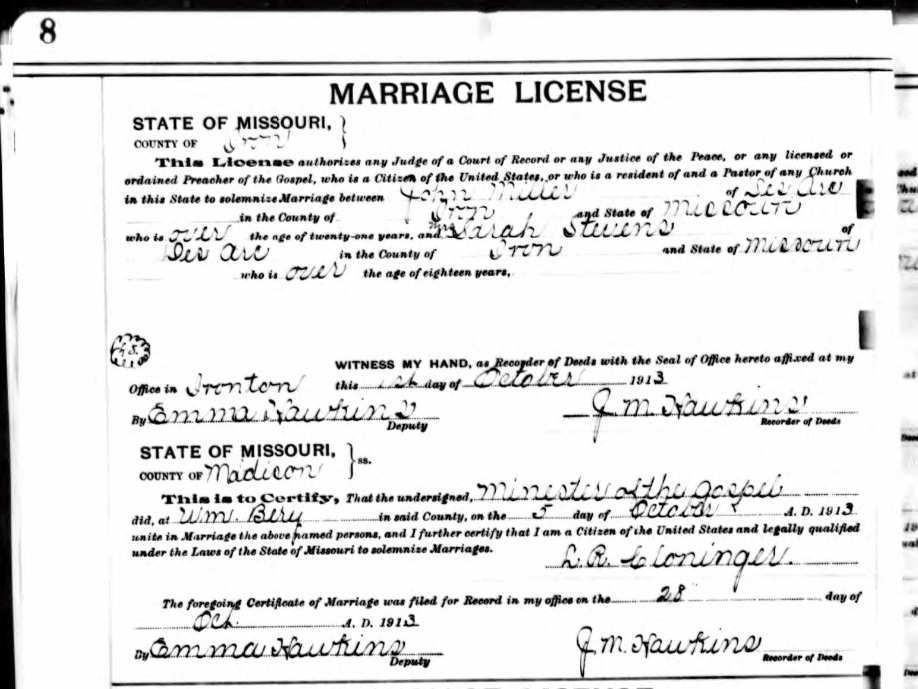 8
MARRIAGE LICENSE
STATE OF MISSOURI,
COUNTY OF Iron
This License authorizes any Judge of a Court of Record or any Justice of the Peace, or any licensed or
ordained Preacher of the Gospel, who is a Citizen of the United States, or who is a resident of and a Pastor of any Church
in this State to solemnize Marriage between John Miller of Des Arc
in the County of Iron and State of Missouri
who is over the age of twenty-one years, and Mrs Sarah Stevens of
Des Arc in the County of Iron and State of Missouri
who is over the age of eighteen years,
WITNESS MY HAND, as Recorder of Deeds with the Seal of Office hereto affixed at my
Office in Ironton this 1st day of October 1913
By Emma Hawkins J. M. Hawkins
Deputy Recorder of Deeds
STATE OF MISSOURI,
COUNTY OF Madison ss.
This is to Certify, That the undersigned, Minester of the Gospel
did, at Wm. Bery in said County, on the 5 day of October A. D. 1913
unite in Marriage the above named persons, and I further certify that I am a Citizen of the United States and legally qualified
under the Laws of the State of Missouri to solemnize Marriages.
L. R. Cloninger.
The foregoing Certificate of Marriage was filed for Record in my office on the 28 day of
Oct. A. D. 1913
By Emma Hawkins J. M. Hawkins
Deputy Recorder of Deeds